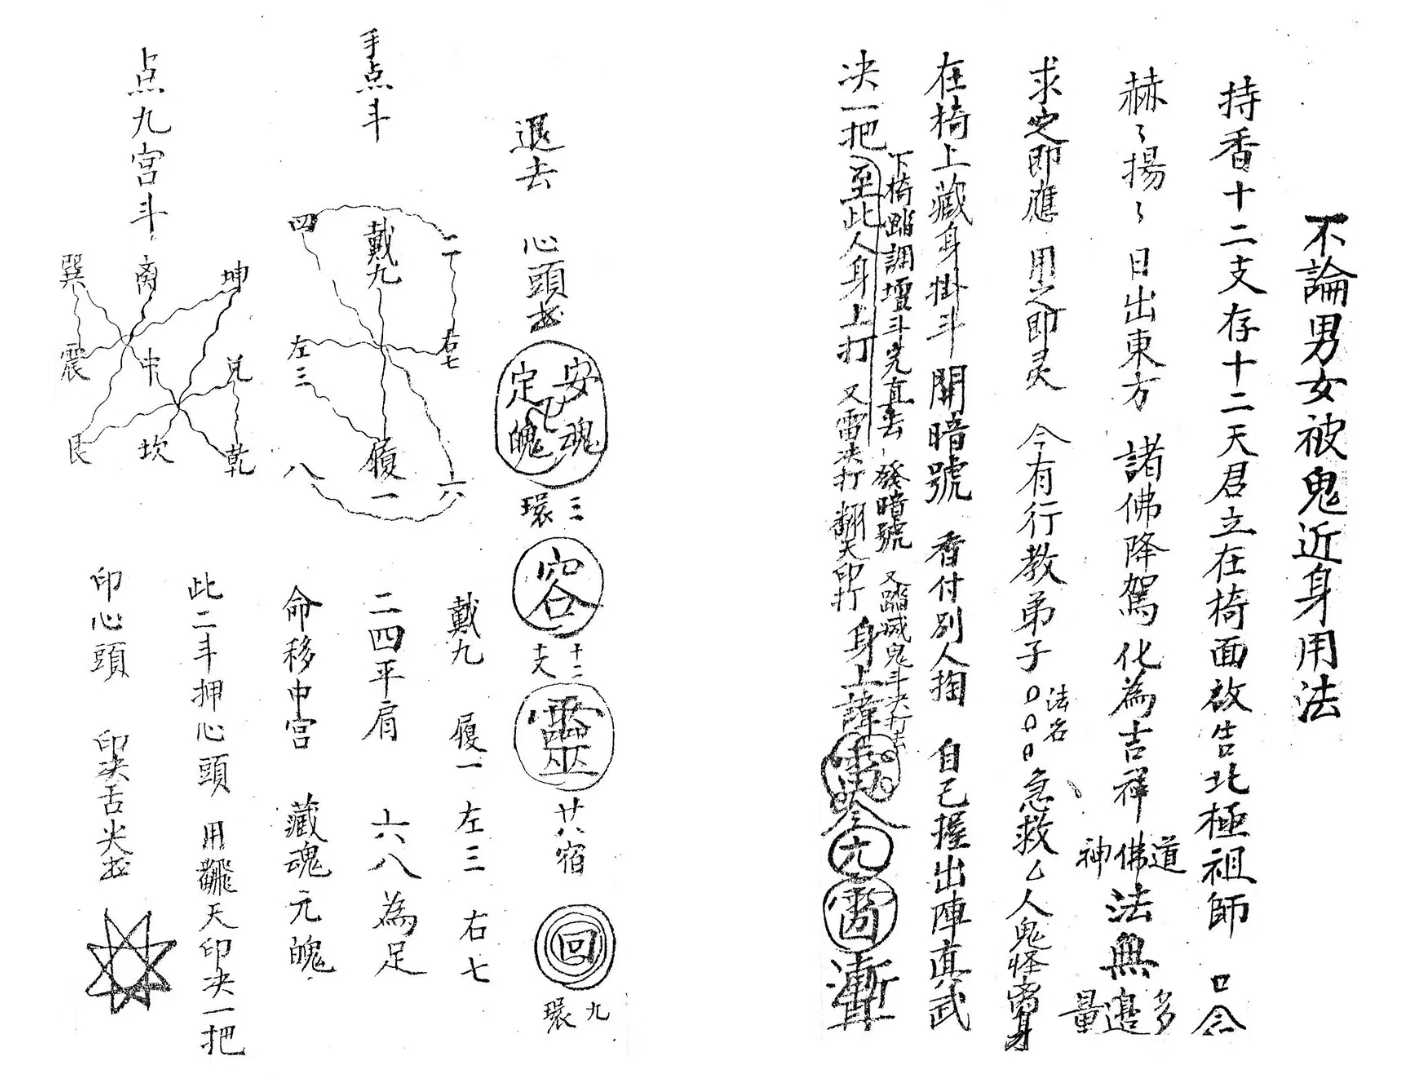 不論男女被鬼近身用法
持香十二支存十二天君立在椅面啟告北極祖師 口念
赫々揚々 日出東方 諸佛降駕 化為吉祥 神佛道法無量邊多
求之即應 用之即灵 今有行教弟子 法名 急救厶人鬼怪
在椅上藏身掛斗 開暗號 香付別人掏 自己握出陣真武
下椅踏調壇斗完直去 發暗號 又踏滅鬼斗决打去
决一把至此人身上打 又雷决打 翻天印打 身上諱
退去 心頭
安魂定魄
三環
容
十二支
靈
廿八宿
回
九環
手点斗
四 戴九 二
左三 右七
八 履一 六
戴九 履一 左三 右七
二四平肩 六八為足
命移中宮 藏魂元魄
点九宮斗
巽 离 坤
震 中 兌
艮 坎 乾
此二斗押心頭 用飜天印决一把
印心頭 印决舌尖